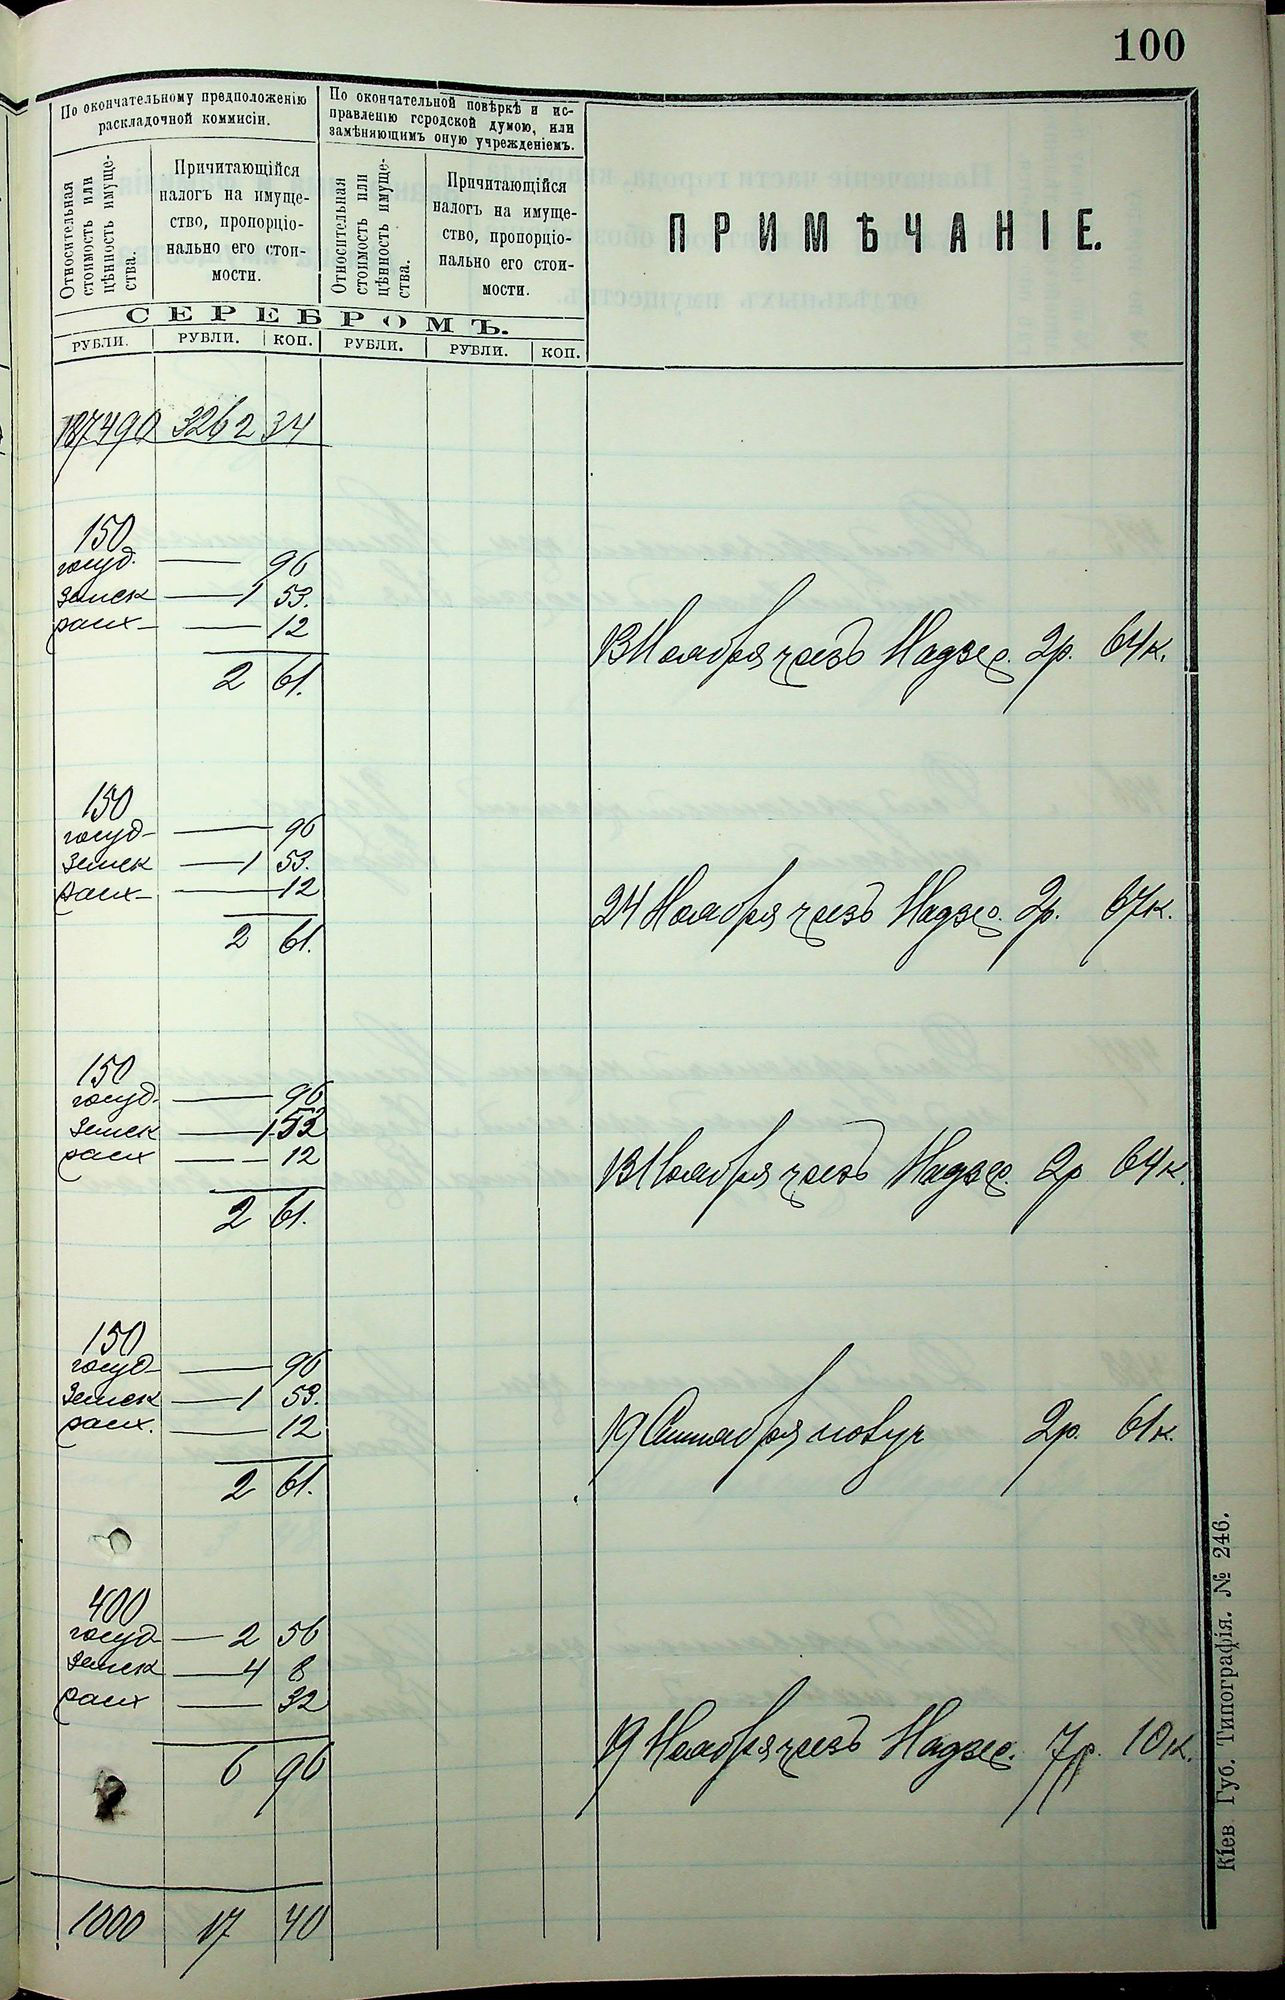 100
По окончательному предположенію
раскладочной коммисіи.
По окончательной повѣркѣ и ис-
правленію городской думою, или
замѣняющимъ оную учрежденіемъ.
Относительная
стоимость или
цѣнность имуще-
ства.
Причитающійся
налогъ на имуще-
ство, пропорціо-
нально его стои-
мости.
Относительная
стоимость или
цѣнность имуще-
ства.
Причитающійся
налогъ на имуще-
ство, пропорціо-
нально его стои-
мости.
ПРИМѢЧАНІЕ.
СЕРЕБРОМЪ.
РУБЛИ. РУБЛИ. КОП. РУБЛИ. РУБЛИ. КОП.
187490 3262 34
150
госуд. — 96
земск — 1 53.
расх — 12
13 Ноября чрезъ Надзер. 2р. 64к.
2 61.
150
госуд — 96
земск — 1 53.
расх — 12
24 Ноября чрезъ Надзер. 2р. 67к.
2 61.
150
госуд. — 96
земск — 1 53
расх — 12
13 Ноября чрезъ Надзер. 2р 64к.
2 61.
150
госуд — 96
земск — 1 53.
расх. — 12
19 2р. 61к.
2 61.
400
госуд — 2 56
земск — 4 8
расх — 32
19 Ноября чрезъ Надзер. 7р. 10к.
6 96
1000 17 40
Кіев. Губ. Типографія. № 246.